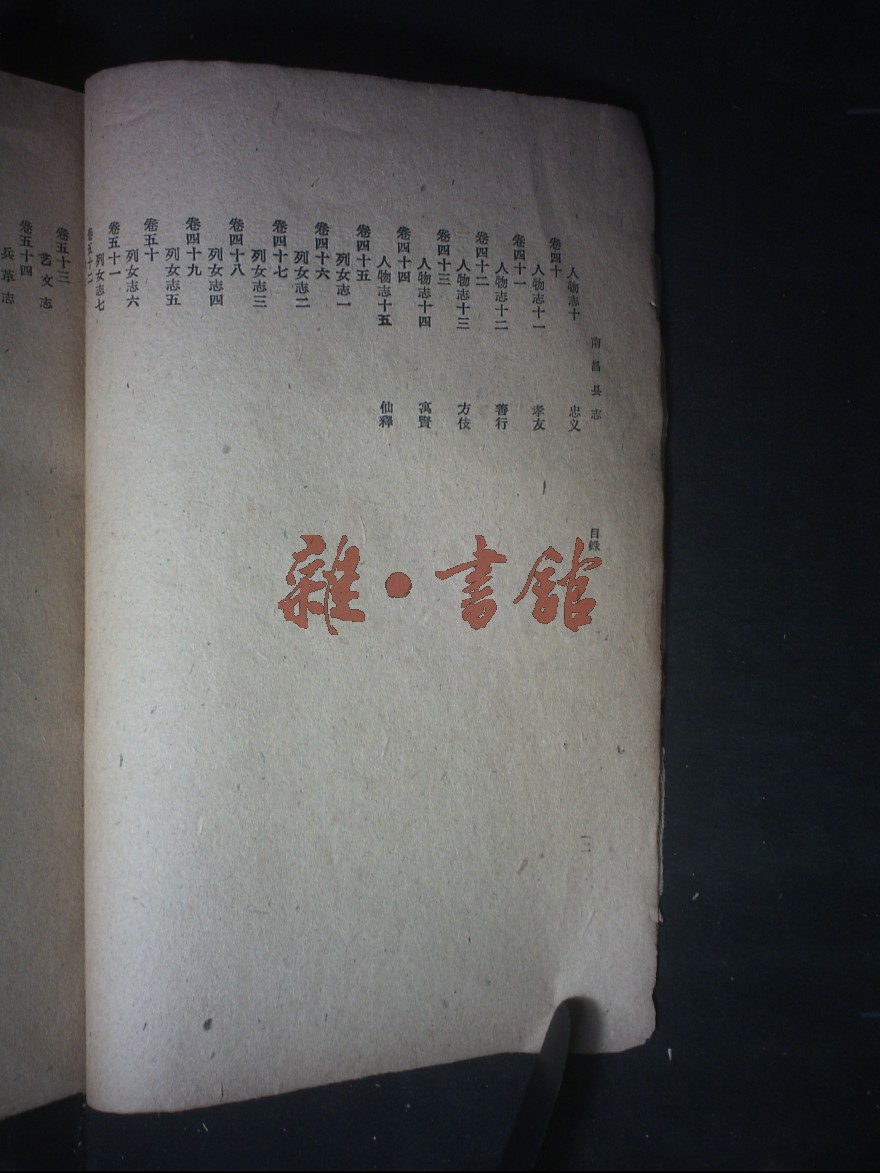 南昌县志 目錄 二
人物志十 忠义
卷四十
人物志十一 孝友
卷四十一
人物志十二 善行
卷四十二
人物志十三 方伎
卷四十三
人物志十四 寓賢
卷四十四
人物志十五 仙釋
卷四十五
列女志一
卷四十六
列女志二
卷四十七
列女志三
卷四十八
列女志四
卷四十九
列女志五
卷五十
列女志六
卷五十一
列女志七
卷五十二
卷五十三
艺文志
卷五十四
兵革志
雜·書館